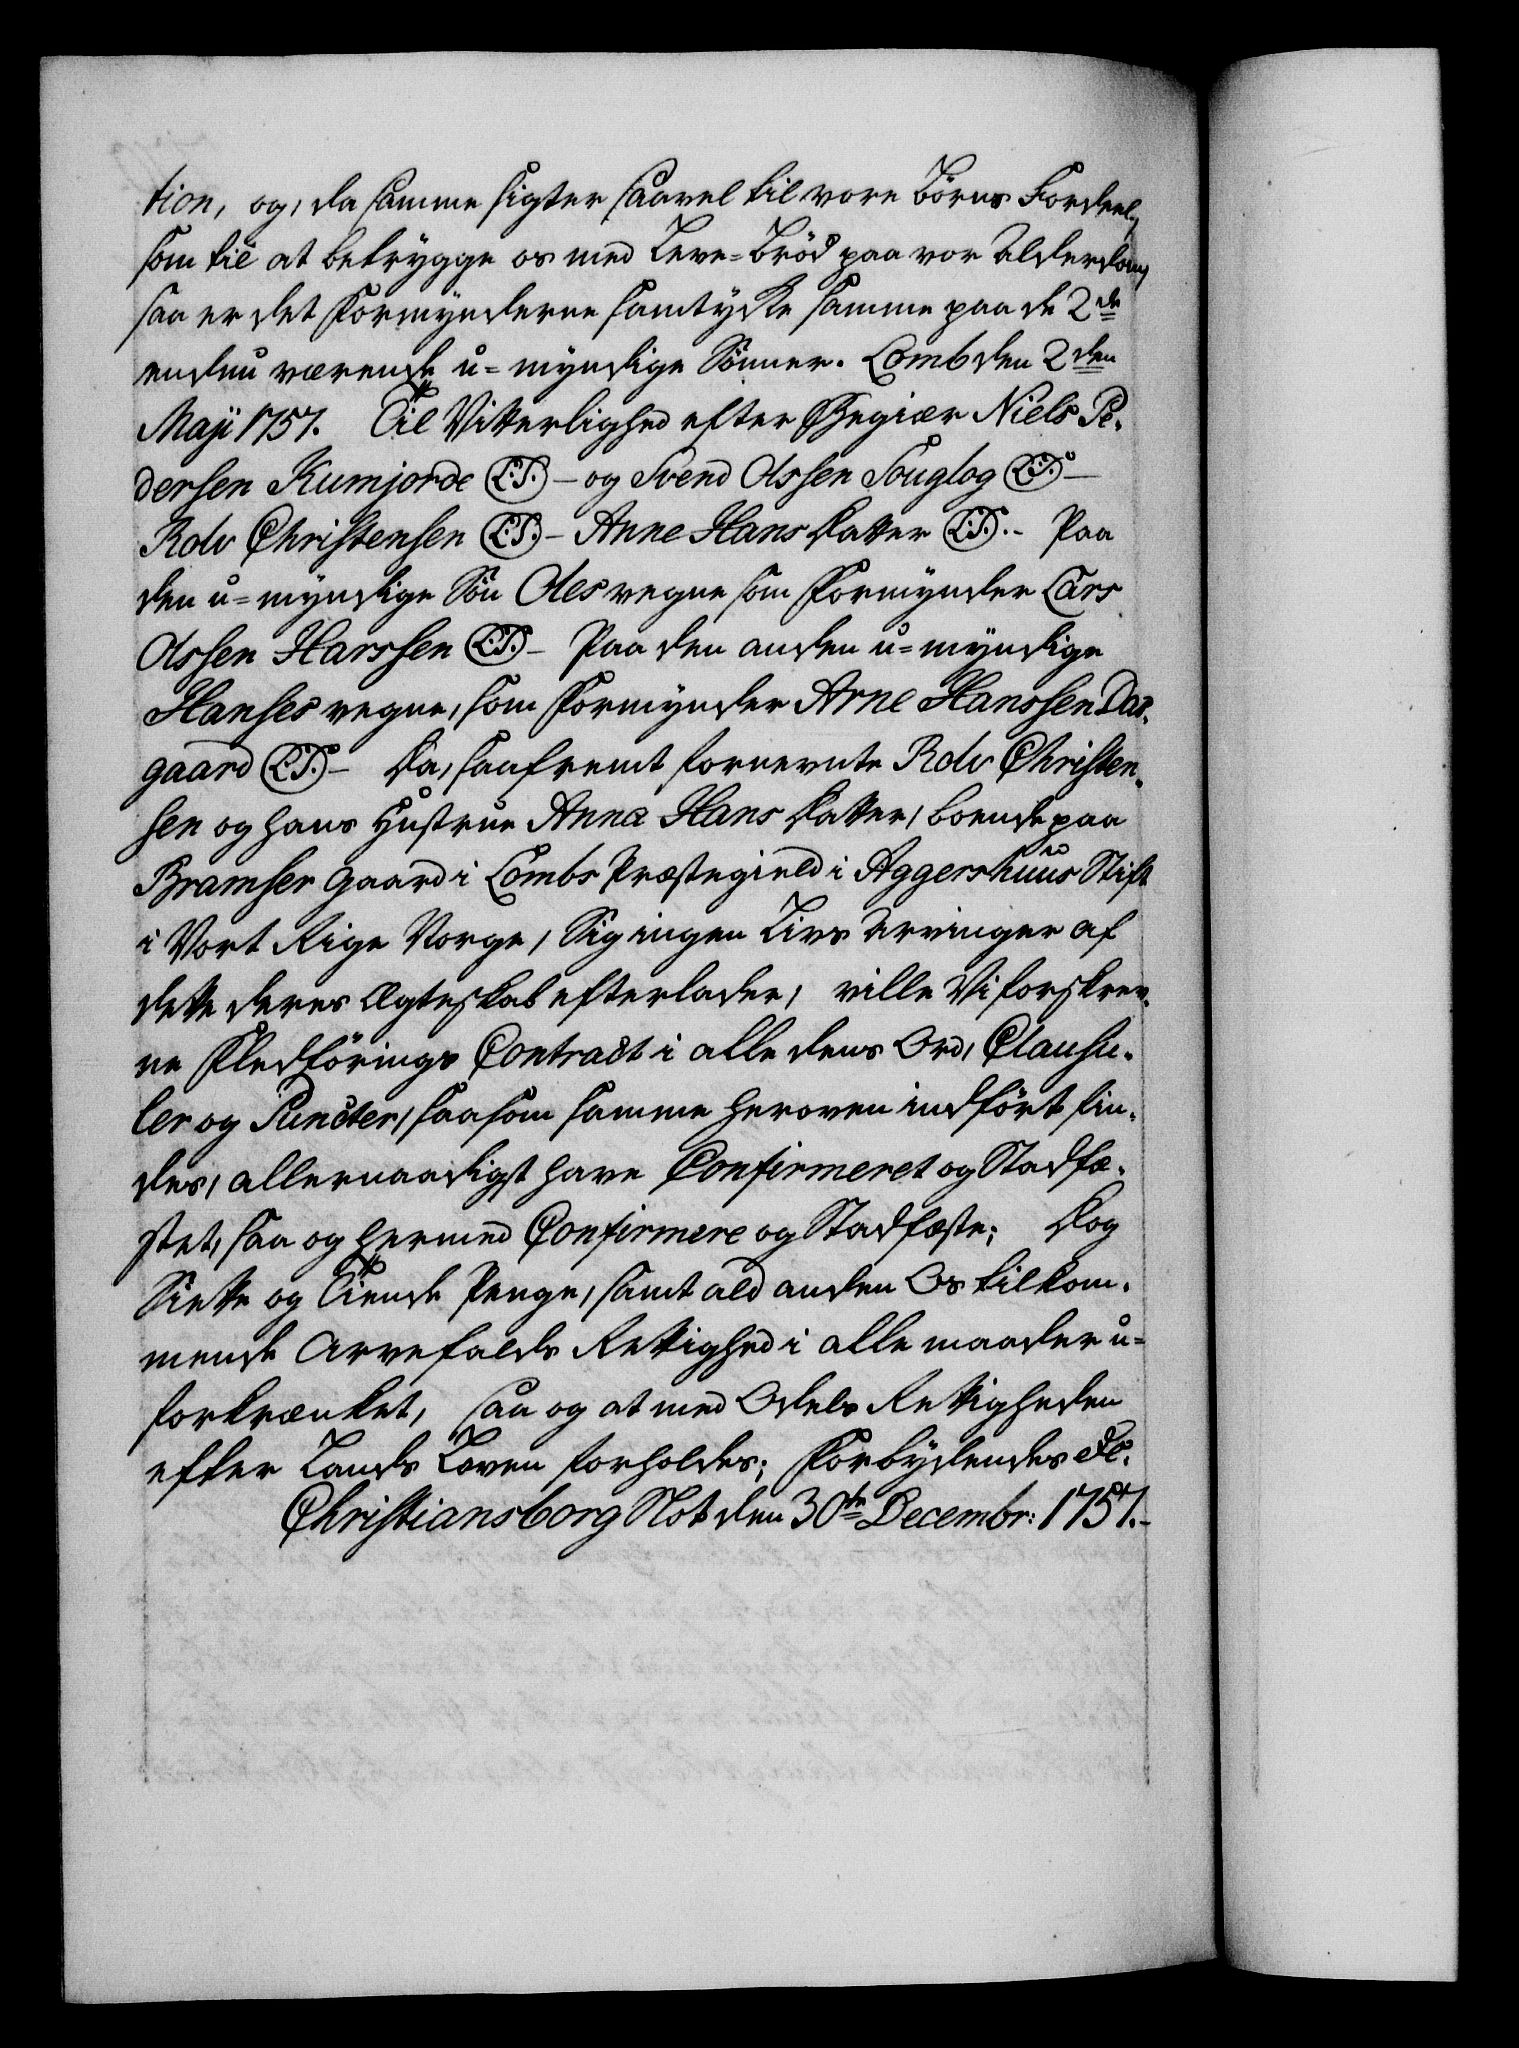 tion, og, da samme sigter saavel til vore Börns Fordeel,
som til at betrygge os med Leve-Bröd paa vor Alderdom,
saa er det Formynderne samtycke samme paa de 2de
endnu værende u-myndige Sönner. Lomb den 2den
Maji 1757. Til Vitterlighed efter Begiær Niels Pe-
dersen Kumjorde (L.S.) - og Svend Olssen Souglog (L.S.) -
Rolv Christensen (L.S.) - Anne Hans Datter (L.S.). - Paa
den u-myndige Sön Oles vegne som Formynder Lars
Olssen Harssen (L.S.) - Paa den anden u-myndige
Hanses vegne, som Formynder Arne Hanssen Dal-
gaard (L.S.) - Da, saafremt fornevnte Rolv Christen-
sen og hans Hustrue Anna Hans Datter, boende paa
Bramser Gaard i Lombs Præstegield i Aggershuus Stift
i Vort Rige Norge, Sig ingen Livs Arvinger af
dette deres Ægteskab efterlader, ville Vi forskrev-
ne Fledförings Contract i alle dens Ord, Clausu-
ler og Puncter, saasom samme heroven indfört fin-
des, allernaadigst have Confirmeret og Stadfæ-
stet, saa og hermed Confirmere og Stadfæste; Dog
Siette og Tiende Penge, samt ald anden Os tilkom-
mende Arvefalds Rettighed i alle maader u-
forkrænket, saa og at med Odels Rettigheden
efter Lands Loven forholdes; Forbydendes &c.
Christiansborg Slot den 30te Decembr: 1757. -